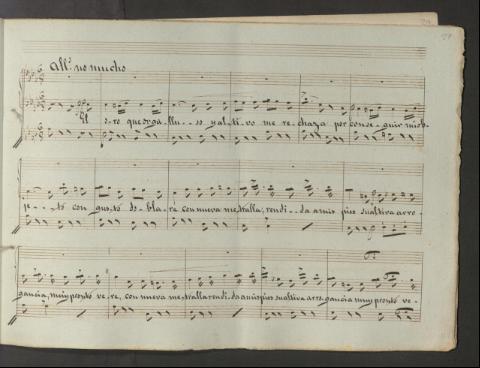 All.º no mucho
El o-ro que orgu-llo-so y al-ti-vo me re-chaza por conse-guir mi ob-
je-to con gus-to do-bla-rá con nueva me-tralla, rendi-da a mis pies su altiva arro-
gancia, muy pronto ve-ré, con nueva me-tralla rendi-da a mis pies su altiva arro-gancia muy pronto ve-